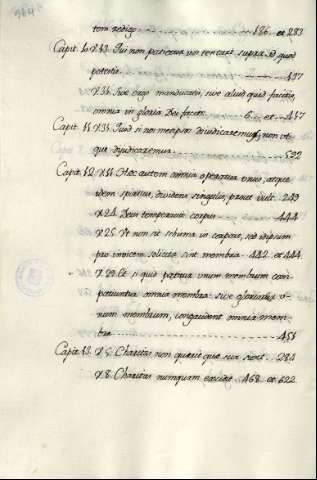 tem redigo ---- 186 et 283
Capit. 10 V.13. Qui non patietur vos tentari supra id quod
potestis ---- 437
V.31. Sive ergo manducatis, sive aliud quid facitis,
omnia in gloria Dei facite. 6. et 417
Capit. 11 V.31. Quod si nosmetipsos dijudicaremus, non uti-
que dijudicaremur ---- 592
Capit. 12 V.11. Hæc autem omnia operatur unus, atque
idem spiritus, dividens singulis, prout vult. 249
V.24. Deus temperavit corpus ---- 444
V.25. Ut non sit schisma in corpore, sed idipsum
pro invicem solicita sint membra 442 et 444
V.26. Et si quid patitur unum membrum com-
patiuntur omnia membra: sive gloriatur u-
num membrum, congaudent omnia mem-
bra ---- 451
Capit. 13. V.5. Charitas non quærit quæ sua sunt. 284
V.8. Charitas nunquam excidit. 468 et 622